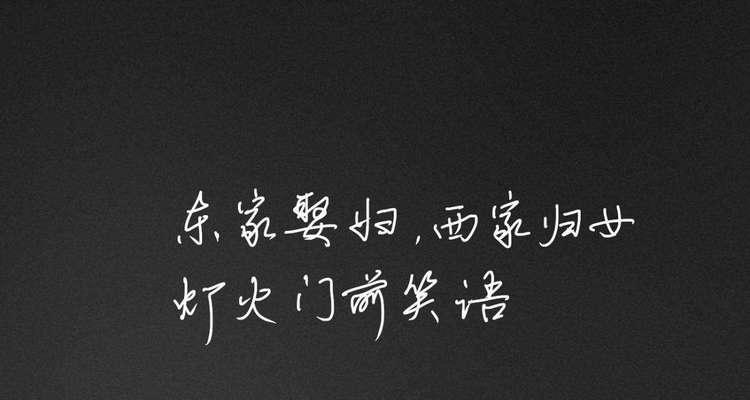 东家娶妇,西家归女
灯火门前笑语